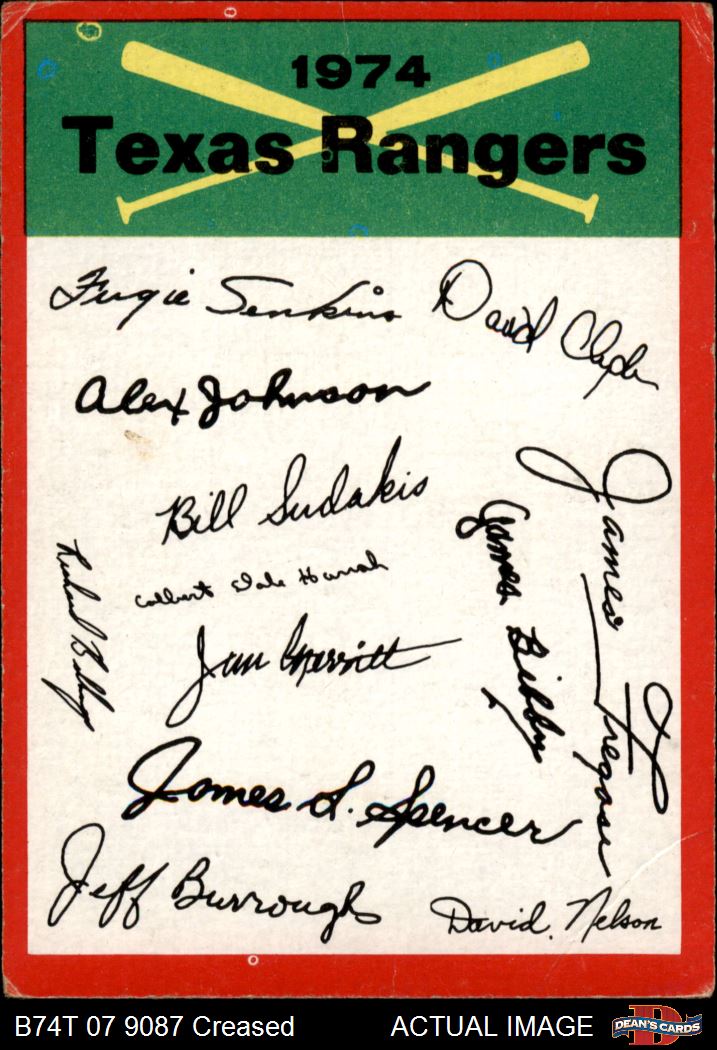 1974
Texas Rangers
Fugie Jenkins
David Clyde
Alex Johnson
Bill Sudakis
James Fregosi
James Bibby
Richard Billings
Colbert Dale Hamrah
Jim Merritt
James L. Spencer
Jeff Burroughs
David Nelson
B74T 07 9087 Creased
ACTUAL IMAGE
D
DEAN'S CARDS